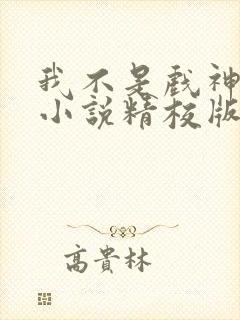 我不是戲神
小說精校版
高貴林